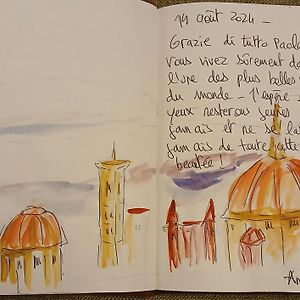 19 août 2024 -
Grazie di tutto Paola
vous vivez sûrement da
l'une des plus belles
du monde - J'espère
yeux resterons jeunes
jamais et ne se la
jamais de toute cette
beauté !